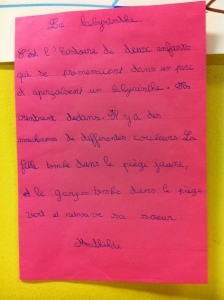 Le labyrinthe
C'est l'histoire de deux enfants
qui se promenaient dans un parc
et aperçoivent un labyrinthe. Ils
rentrent dedans. Il y a des
de différentes couleurs La
fille tombe dans le piège jaune,
et le garçon tombe dans le piège
vert et retrouve sa soeur
Mathilde